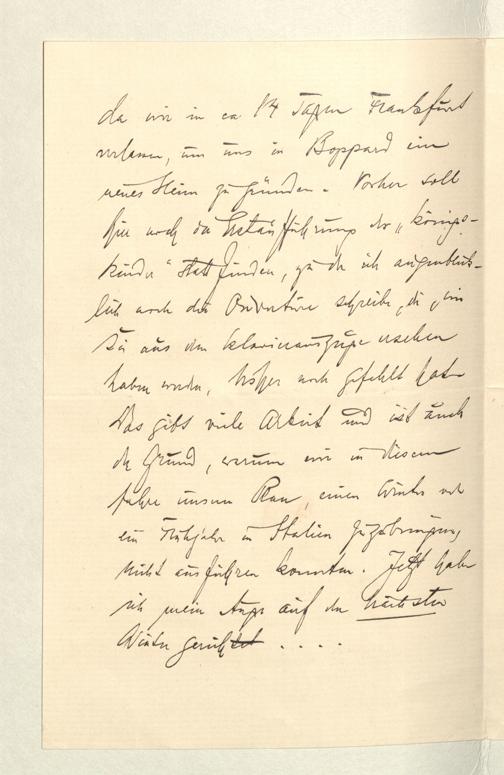 da wir in ca 14 Tagen Frankfurt
verlassen, um uns in Boppard ein
neues Heim zu gründen. Vorher soll
hier noch die Erstaufführung der „Königs-
kinder" stattfinden, zu der ich augenblick-
lich noch die Ouvertüre schreibe, die, wie
Sie aus dem Klavierauszuge ersehen
haben werden, bisher noch gefehlt hat.
Das gibt viele Arbeit und ist auch
der Grund, warum wir in diesem
Jahre unsern Plan, einen Winter und
ein Frühjahr in Italien zuzubringen,
nicht ausführen konnten. Jetzt habe
ich mein Auge auf den nächsten
Winter gerichtet . . . .